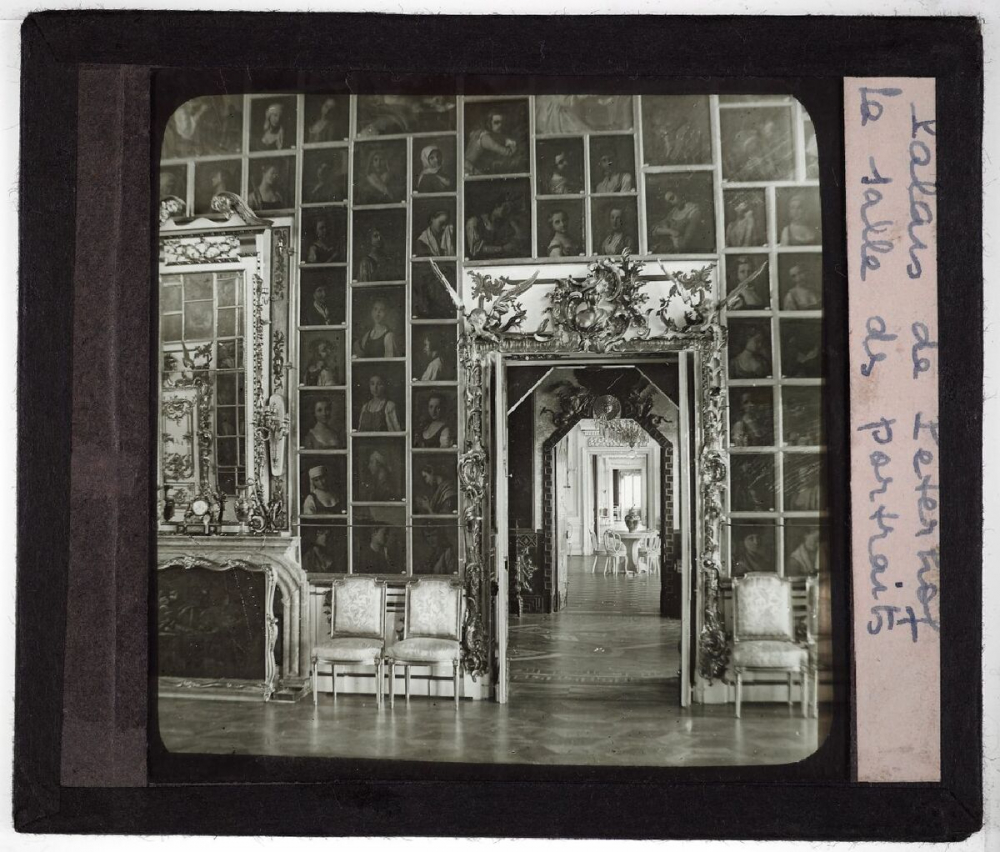 Palais de Peterhof
la salle des portraits